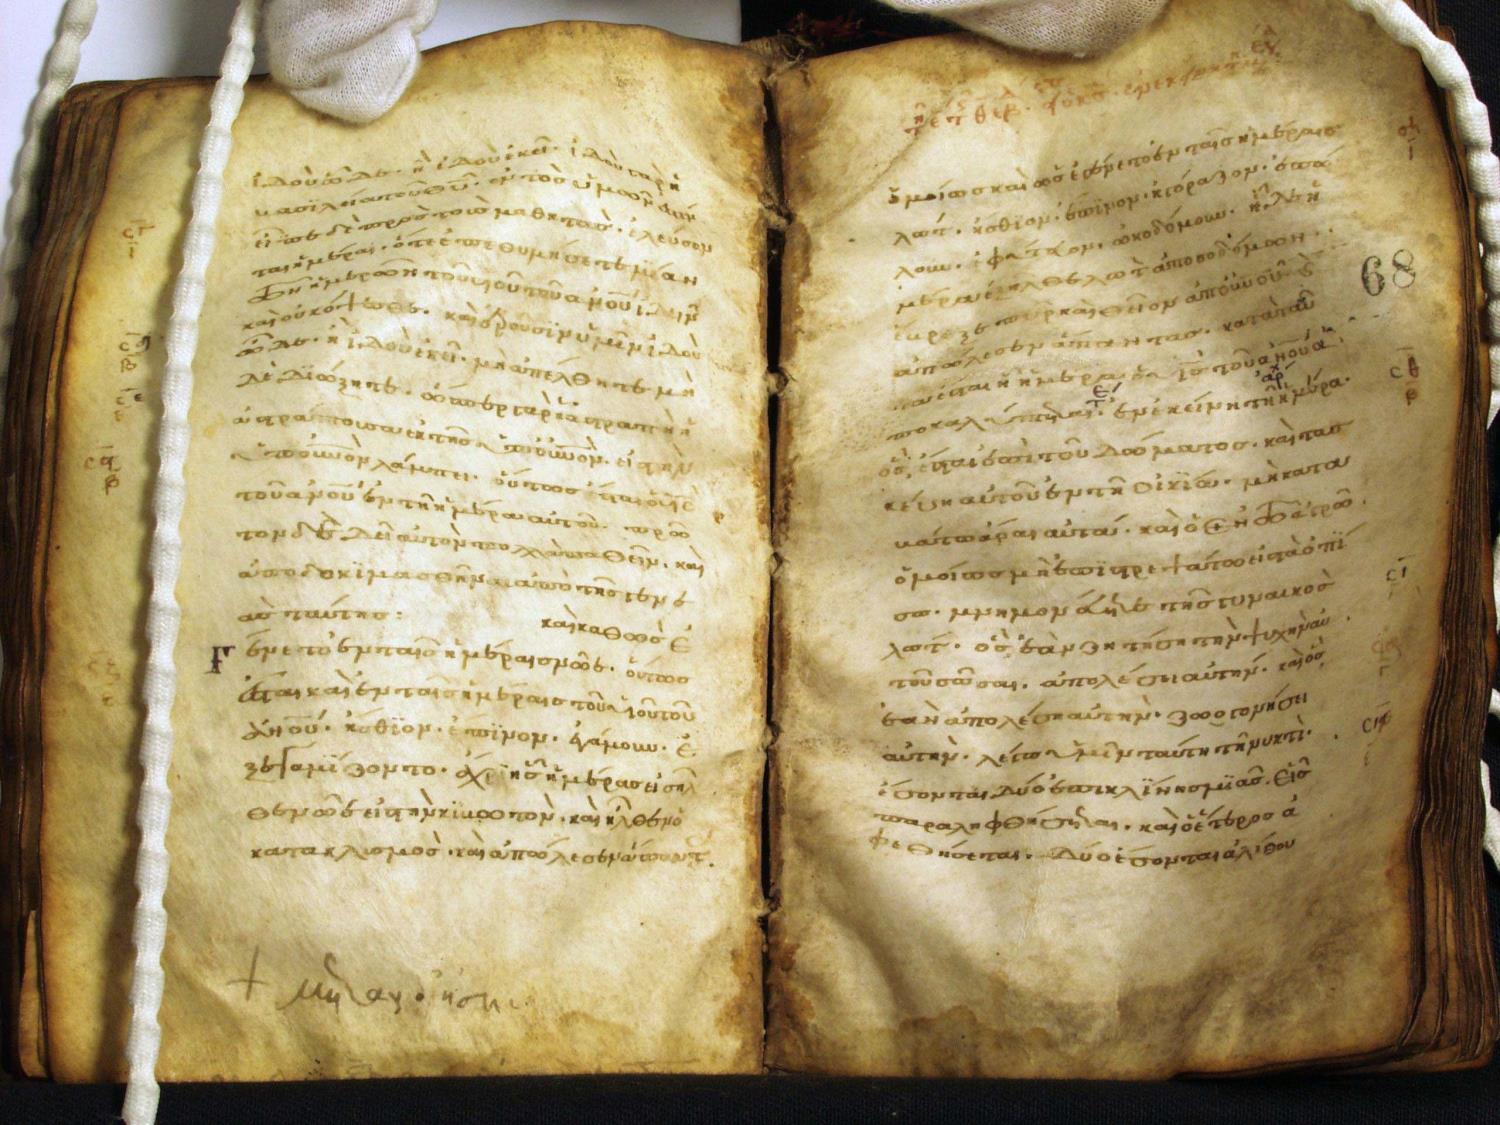 ἰδοὺ ὧδε· ἢ ἰδοὺ ἐκεῖ· ἰδοὺ γὰρ ἡ
βασιλεία τοῦ θῦ· ἐντὸς ὑμῶν ἐστίν
εἶπε δὲ πρὸς τοὺς μαθητάς· ἐλεύσον
ται ἡμέραι· ὅτε ἐπιθυμήσετε μίαν
τῶν ἡμερῶν τοῦ υἱοῦ τοῦ ἀνοῦ ἰδεῖν
καὶ οὐκ ὄψεσθε· καὶ ἐροῦσιν ὑμῖν ἰδοὺ
ὧδε· ἢ ἰδοὺ ἐκεῖ· μὴ ἀπέλθητε μὴ
δὲ διώξητε· ὥσπερ γὰρ ἡ ἀστραπὴ ἡ
ἀστράπτουσα ἐκ τῆς ὑπ' οὐνὸν· εἰς τὴν
ὑπ' οὐνὸν λάμπει· οὕτως ἔσται ὁ υἱὸς
τοῦ ἀνοῦ ἐν τῇ ἡμέρα αὐτοῦ· πρῶ
τον δὲ δεῖ αὐτὸν πολλὰ παθεῖν· καὶ
ἀποδοκιμασθῆναι ἀπὸ τῆς γενε
ᾶς ταύτης: καὶ καθὼς ἐ
γένετο ἐν ταῖς ἡμέραις νῶε· οὕτως
ἔσται καὶ ἐν ταῖς ἡμέραις τοῦ υἱοῦ τοῦ
ἀνοῦ· ἤσθιον· ἔπινον· ἐγάμουν· ἐ
ξεγαμίζοντο· ἄχρι ἧς ἡμέρας εἰσῆλ
θε νῶε εἰς τὴν κιβωτὸν· καὶ ἦλθεν ὁ
κατακλυσμὸς· καὶ ἀπώλεσεν ἅπαντ
68
ὁμοίως καὶ ὡς ἐγένετο ἐν ταῖς ἡμέραις
λώτ· ἤσθιον· ἔπινον· ἠγόραζον· ἐπώ
λουν· ἐφύτευον· ὠκοδόμουν· ἧ δὲ ἡ
μέρα ἐξῆλθε λὼτ ἀπὸ σοδόμων·
ἔβρεξε πῦρ καὶ θεῖον ἀπ' οὐνοῦ καὶ
ἀπώλεσεν ἅπαντας· κατὰ ταῦ
τα ἔσται ἧ ἡμέρα ὁ υἱὸς τοῦ ἀνοῦ ἀ
ποκαλύπτεται· ἐν ἐκείνη τῆ ἡμέρα·
ὃς ἔσται ἐπὶ τοῦ δώματος· καὶ τὰ σ
κεύη αὐτοῦ ἐν τῆ οἰκία· μὴ κατα
βάτω ἆραι αὐτά· καὶ ὁ ἐν τῶ ἀγρῶ·
ὁμοίως μὴ ἐπιστρεψάτω εἰς τὰ ὀπί
σω· μνημονεύετε τῆς γυναικὸς
λώτ· ὃς ἐὰν ζητήση τὴν ψυχὴν αὐ
τοῦ σῶσαι· ἀπολέσει αὐτήν· καὶ ὃς
ἐὰν ἀπολέση αὐτὴν· ζωογονήσει
αὐτήν· λέγω ὑμῖν ταύτη τῆ νυκτὶ·
ἔσονται δύο ἐπὶ κλίνης μιᾶς· εἷς
παραληφθήσεται· καὶ ὁ ἕτερος ἀ
φεθήσεται· δύο ἔσονται ἀλήθου